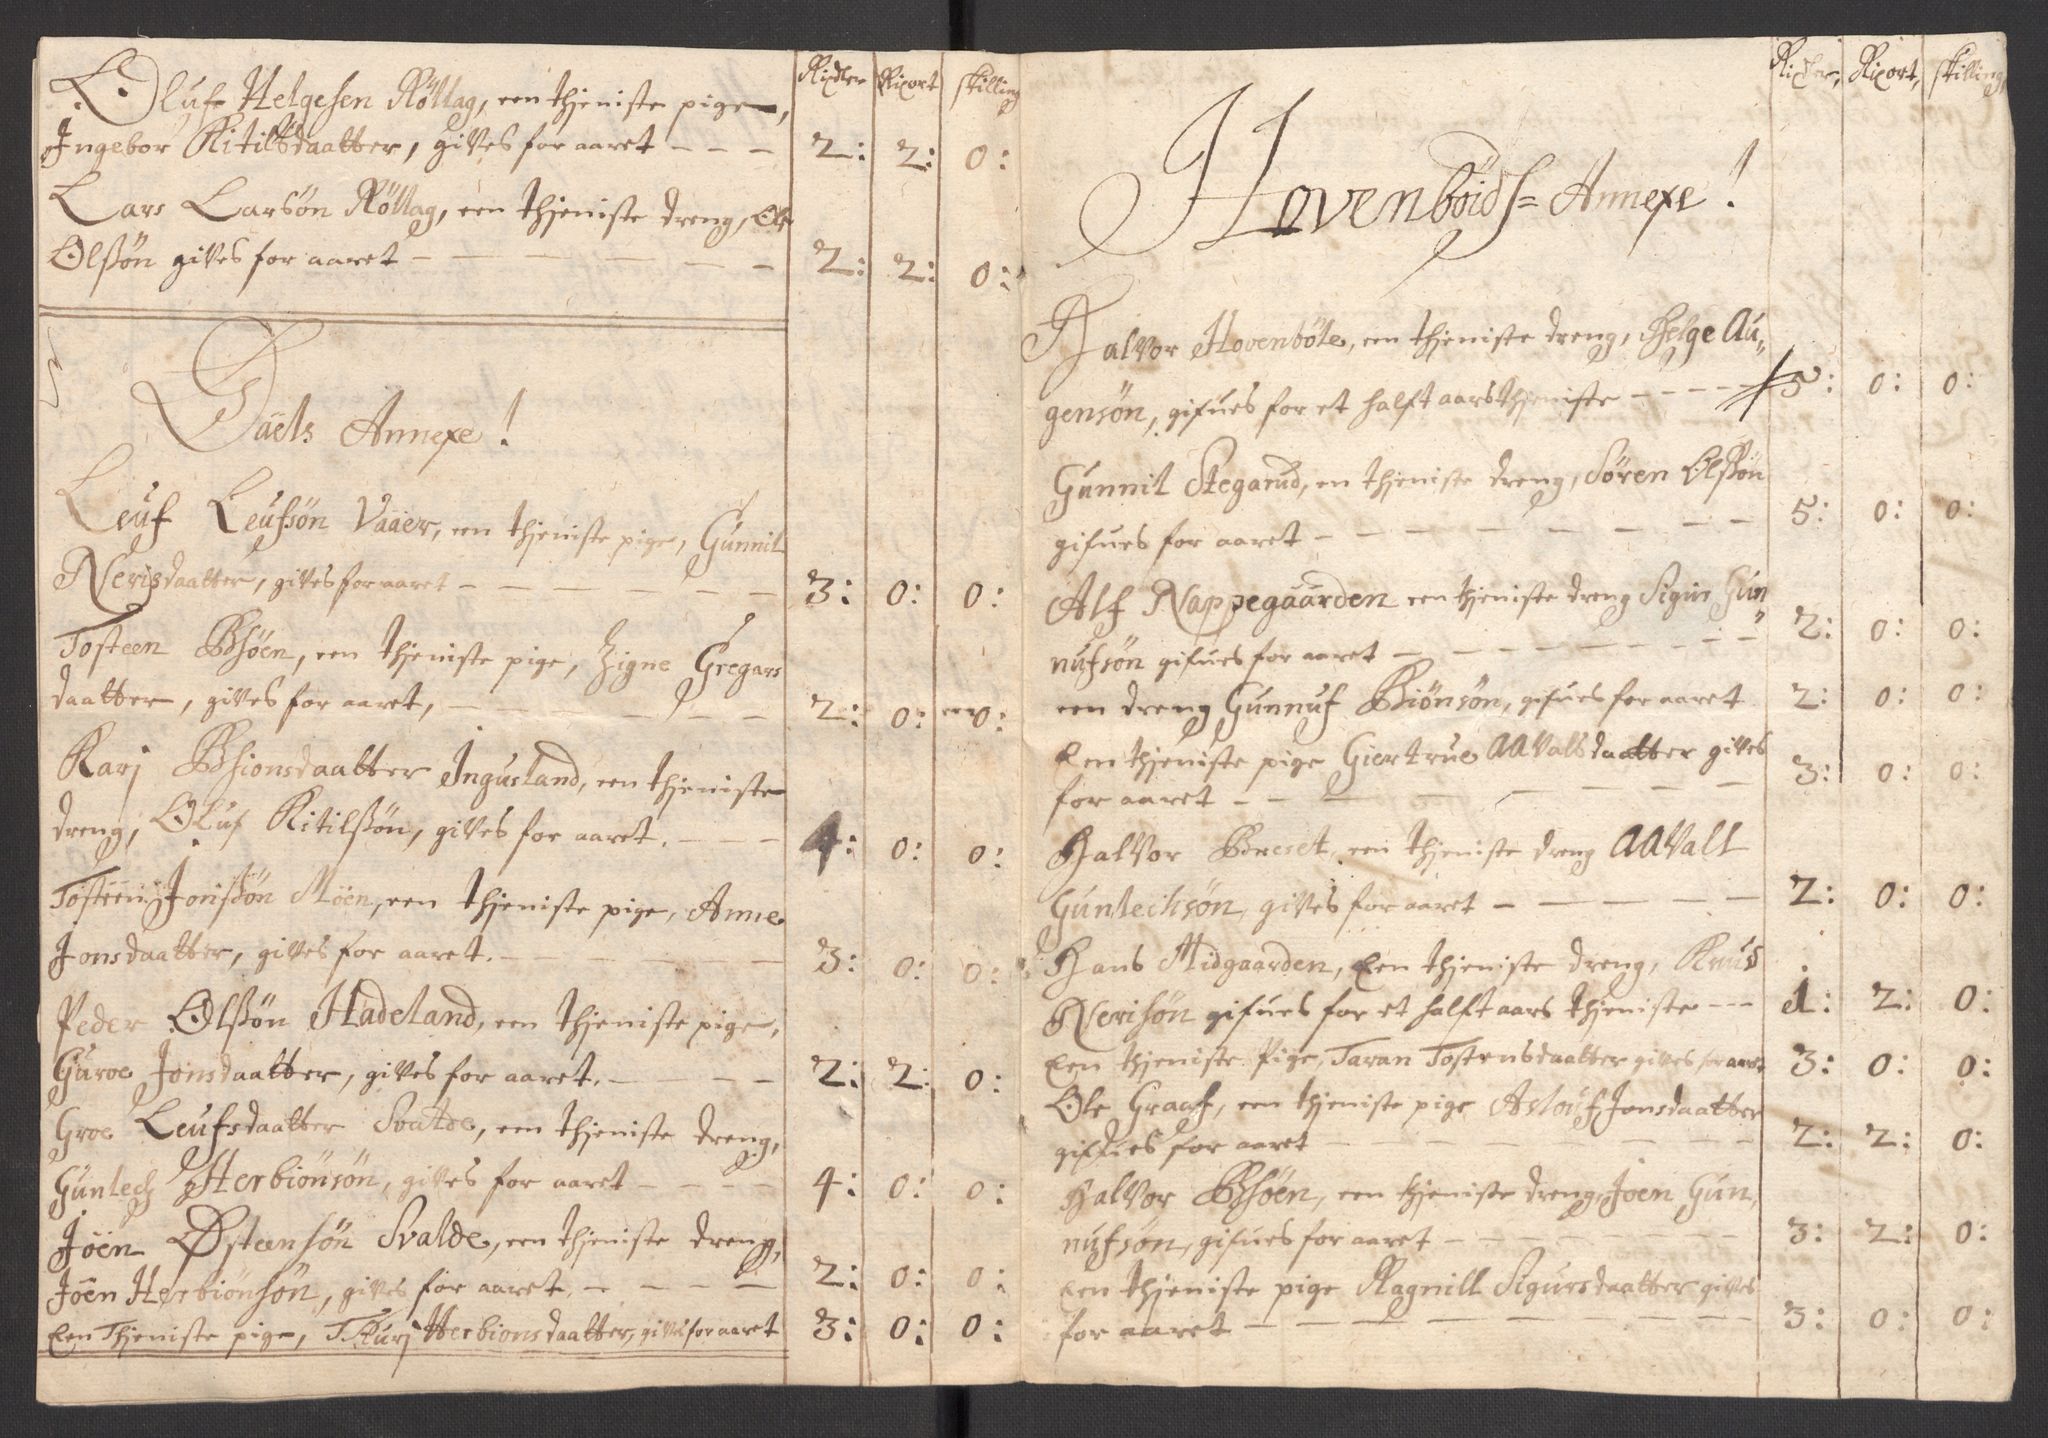 Rixdler Rixort skilling
Oluf Helgesen Röllag, een thjeniste pige,
Ingebor Kitilsdaatter, gives for aaret - - - 2: 2: 0:
Lars Larsön Röllag, een thjeniste dreng, Ole
Olssön gives for aaret - - - - - - 2: 2: 0:
Daels Annexe!
Leuf Leufsön Vaaer, een thjeniste pige, Gunnil
Nerisdaatter, gives for aaret - - - - - - 3: 0: 0:
Tosteen Bhöen, een thjeniste pige, Zigne Gregars
daatter, gives for aaret, - - - - - - 2: 0: 0:
Karj Bhionsdaatter Ingusland, een thjeniste
dreng, Oluf Kitilssön, gives for aaret. - - - 4: 0: 0:
Tosteen Jonssön Möen, een thjeniste pige, Anne
Jonsdaatter, gives for aaret. - - - - - 3: 0: 0:
Peder Olssön Hadeland, een thjeniste pige,
Guroe Jonsdaatter, gives for aaret. - - - - 2: 2: 0:
Groe Leufsdaatter Svalde, een thjeniste dreng,
Gunlech Herbiönsön, gives for aaret - - - - 4: 0: 0:
Joen Østeensön Svalde, een thjeniste dreng,
Joen Herbiönsön, gives for aaret. - - - - 2: 0: 0:
Een Thjeniste pige, Thurj Herbionsdaatter, gives for aaret 3: 0: 0:
Rixdler, Rixort, skilling,
Hovenböids= Annexe!
Halvor Hovenböle, een thjeniste dreng, Helge Au„
gensön, gifues for et halft aars thjeniste - - - - 5: 0: 0:
Gunnil Stegarud, en thjeniste dreng, Sören Olssön
gifues for aaret - - - - - - - - 5: 0: 0:
Alf Nappegaarden een thjeniste dreng Sigur Gun„
nufsön gifues for aaret - - - - - - - - 2: 0: 0:
een dreng Gunnuf Biönsön, gifues for aaret 2: 0: 0:
Een thjeniste pige Giertrue AAvalsdaatter gives
for aaret - - - - - - - - 3: 0: 0:
Halvor Breset, een thjeniste dreng AAvall
Gunlechsön, gives for aaret - - - - - 2: 0: 0:
Hans Midgaarden, Een thjeniste dreng, Knud
Nerisön gifues for et halft aars thjeniste - - - 1: 2: 0:
Een thjeniste Pige, Taran Tostensdaatter gives for aaret 3: 0: 0:
Ole Graaf, een thjeniste pige Aslouf Jonsdaatter
giffues for aaret - - - - - - - 2: 2: 0:
Halvor Bhöen, een thjeniste dreng, Joen Gun„
nufsön, gifues for aaret - - - - - - - 3: 2: 0:
Een thjeniste pige Ragnill Sigursdaatter gives
for aaret - - - - - - - - 3: 0: 0: